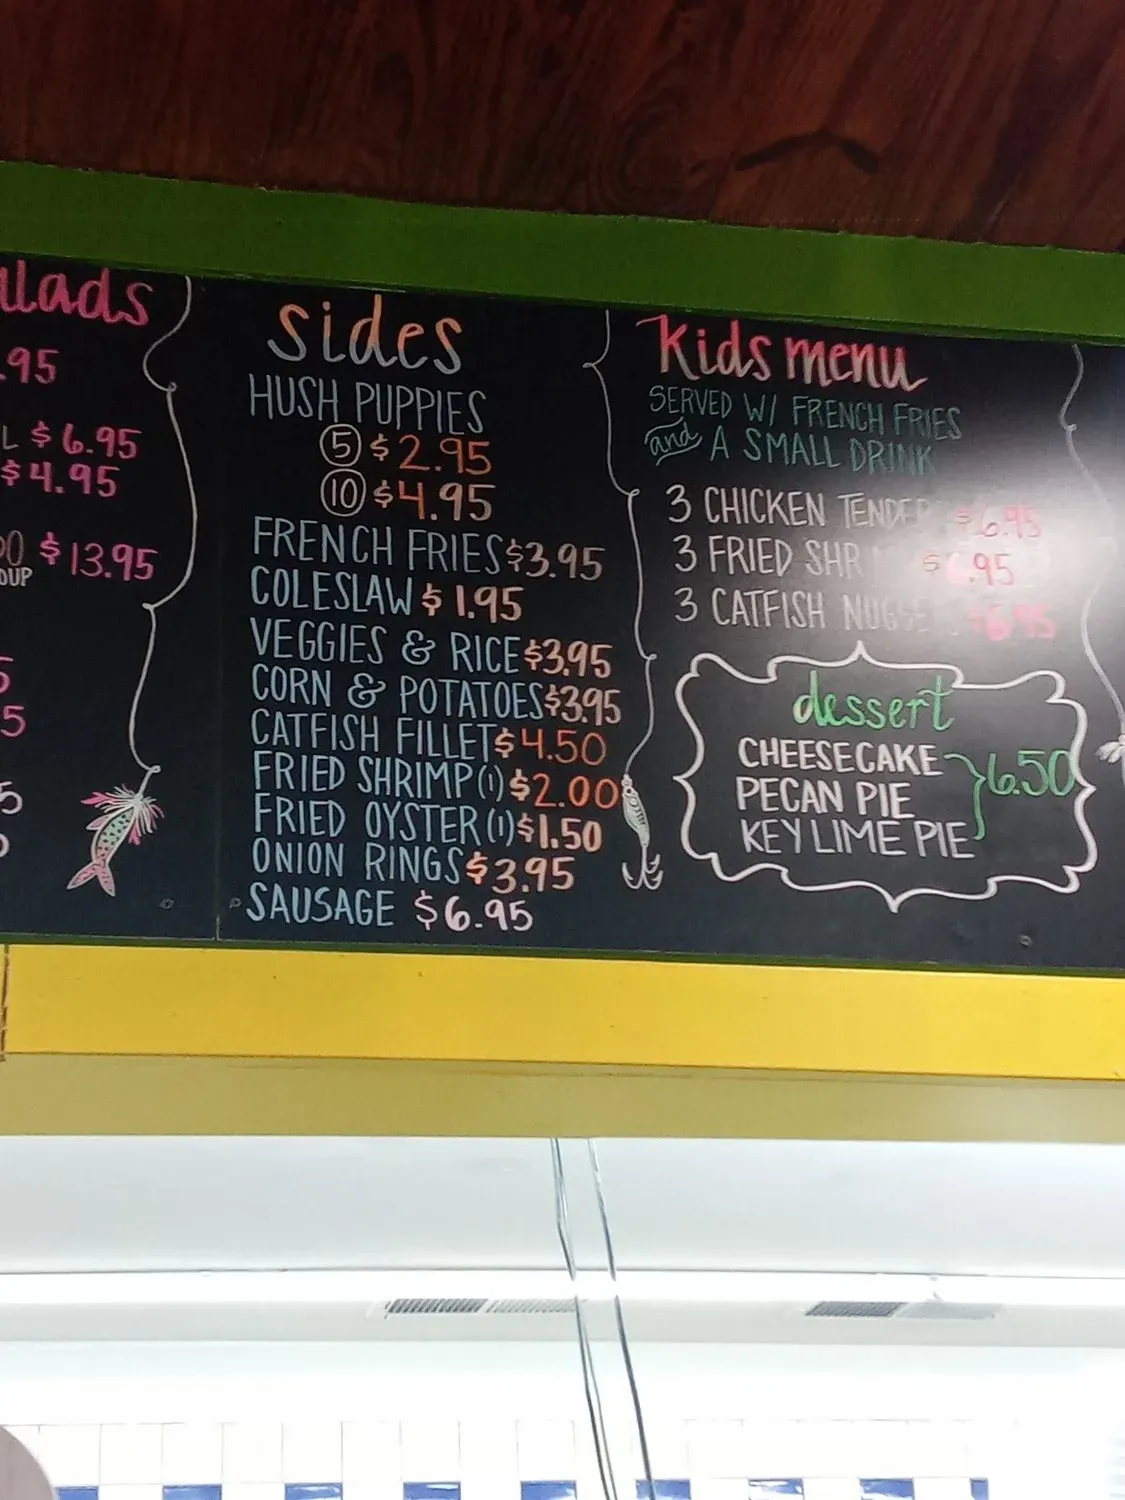 .95
$6.95
$4.95
$13.95
Sides
HUSH PUPPIES
5 $2.95
10 $4.95
FRENCH FRIES $3.95
COLESLAW $1.95
VEGGIES & RICE $3.95
CORN & POTATOES $3.95
CATFISH FILLET $4.50
FRIED SHRIMP (1) $2.00
FRIED OYSTER (1) $1.50
ONION RINGS $3.95
SAUSAGE $6.95
Kids menu
SERVED W/ FRENCH FRIES
and A SMALL DRINK
3 CHICKEN $6.95
3 FRIED .95
3 CATFISH $6.95
dessert
CHEESECAKE
PECAN PIE 6.50
KEY LIME PIE